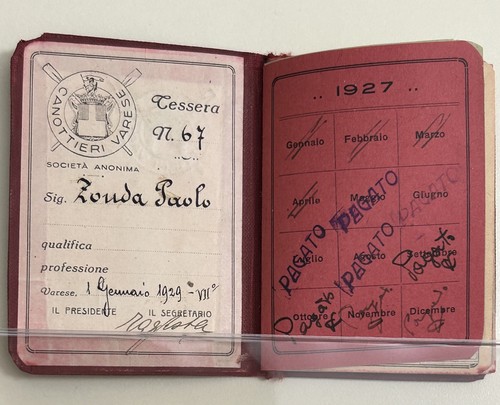 CANOTTIERI VARESE
SOCIETÀ ANONIMA
Tessera
N. 67
Sig. Zonda Paolo
qualifica
professione
Varese, 1 Gennaio 1929 - VII°
IL PRESIDENTE IL SEGRETARIO
.. 1927 ..
Gennaio Febbraio Marzo
Aprile Maggio Giugno
Luglio Agosto Settembre
PAGATO PAGATO PAGATO PAGATO
Pagato
Pagato
Ottobre Novembre Dicembre